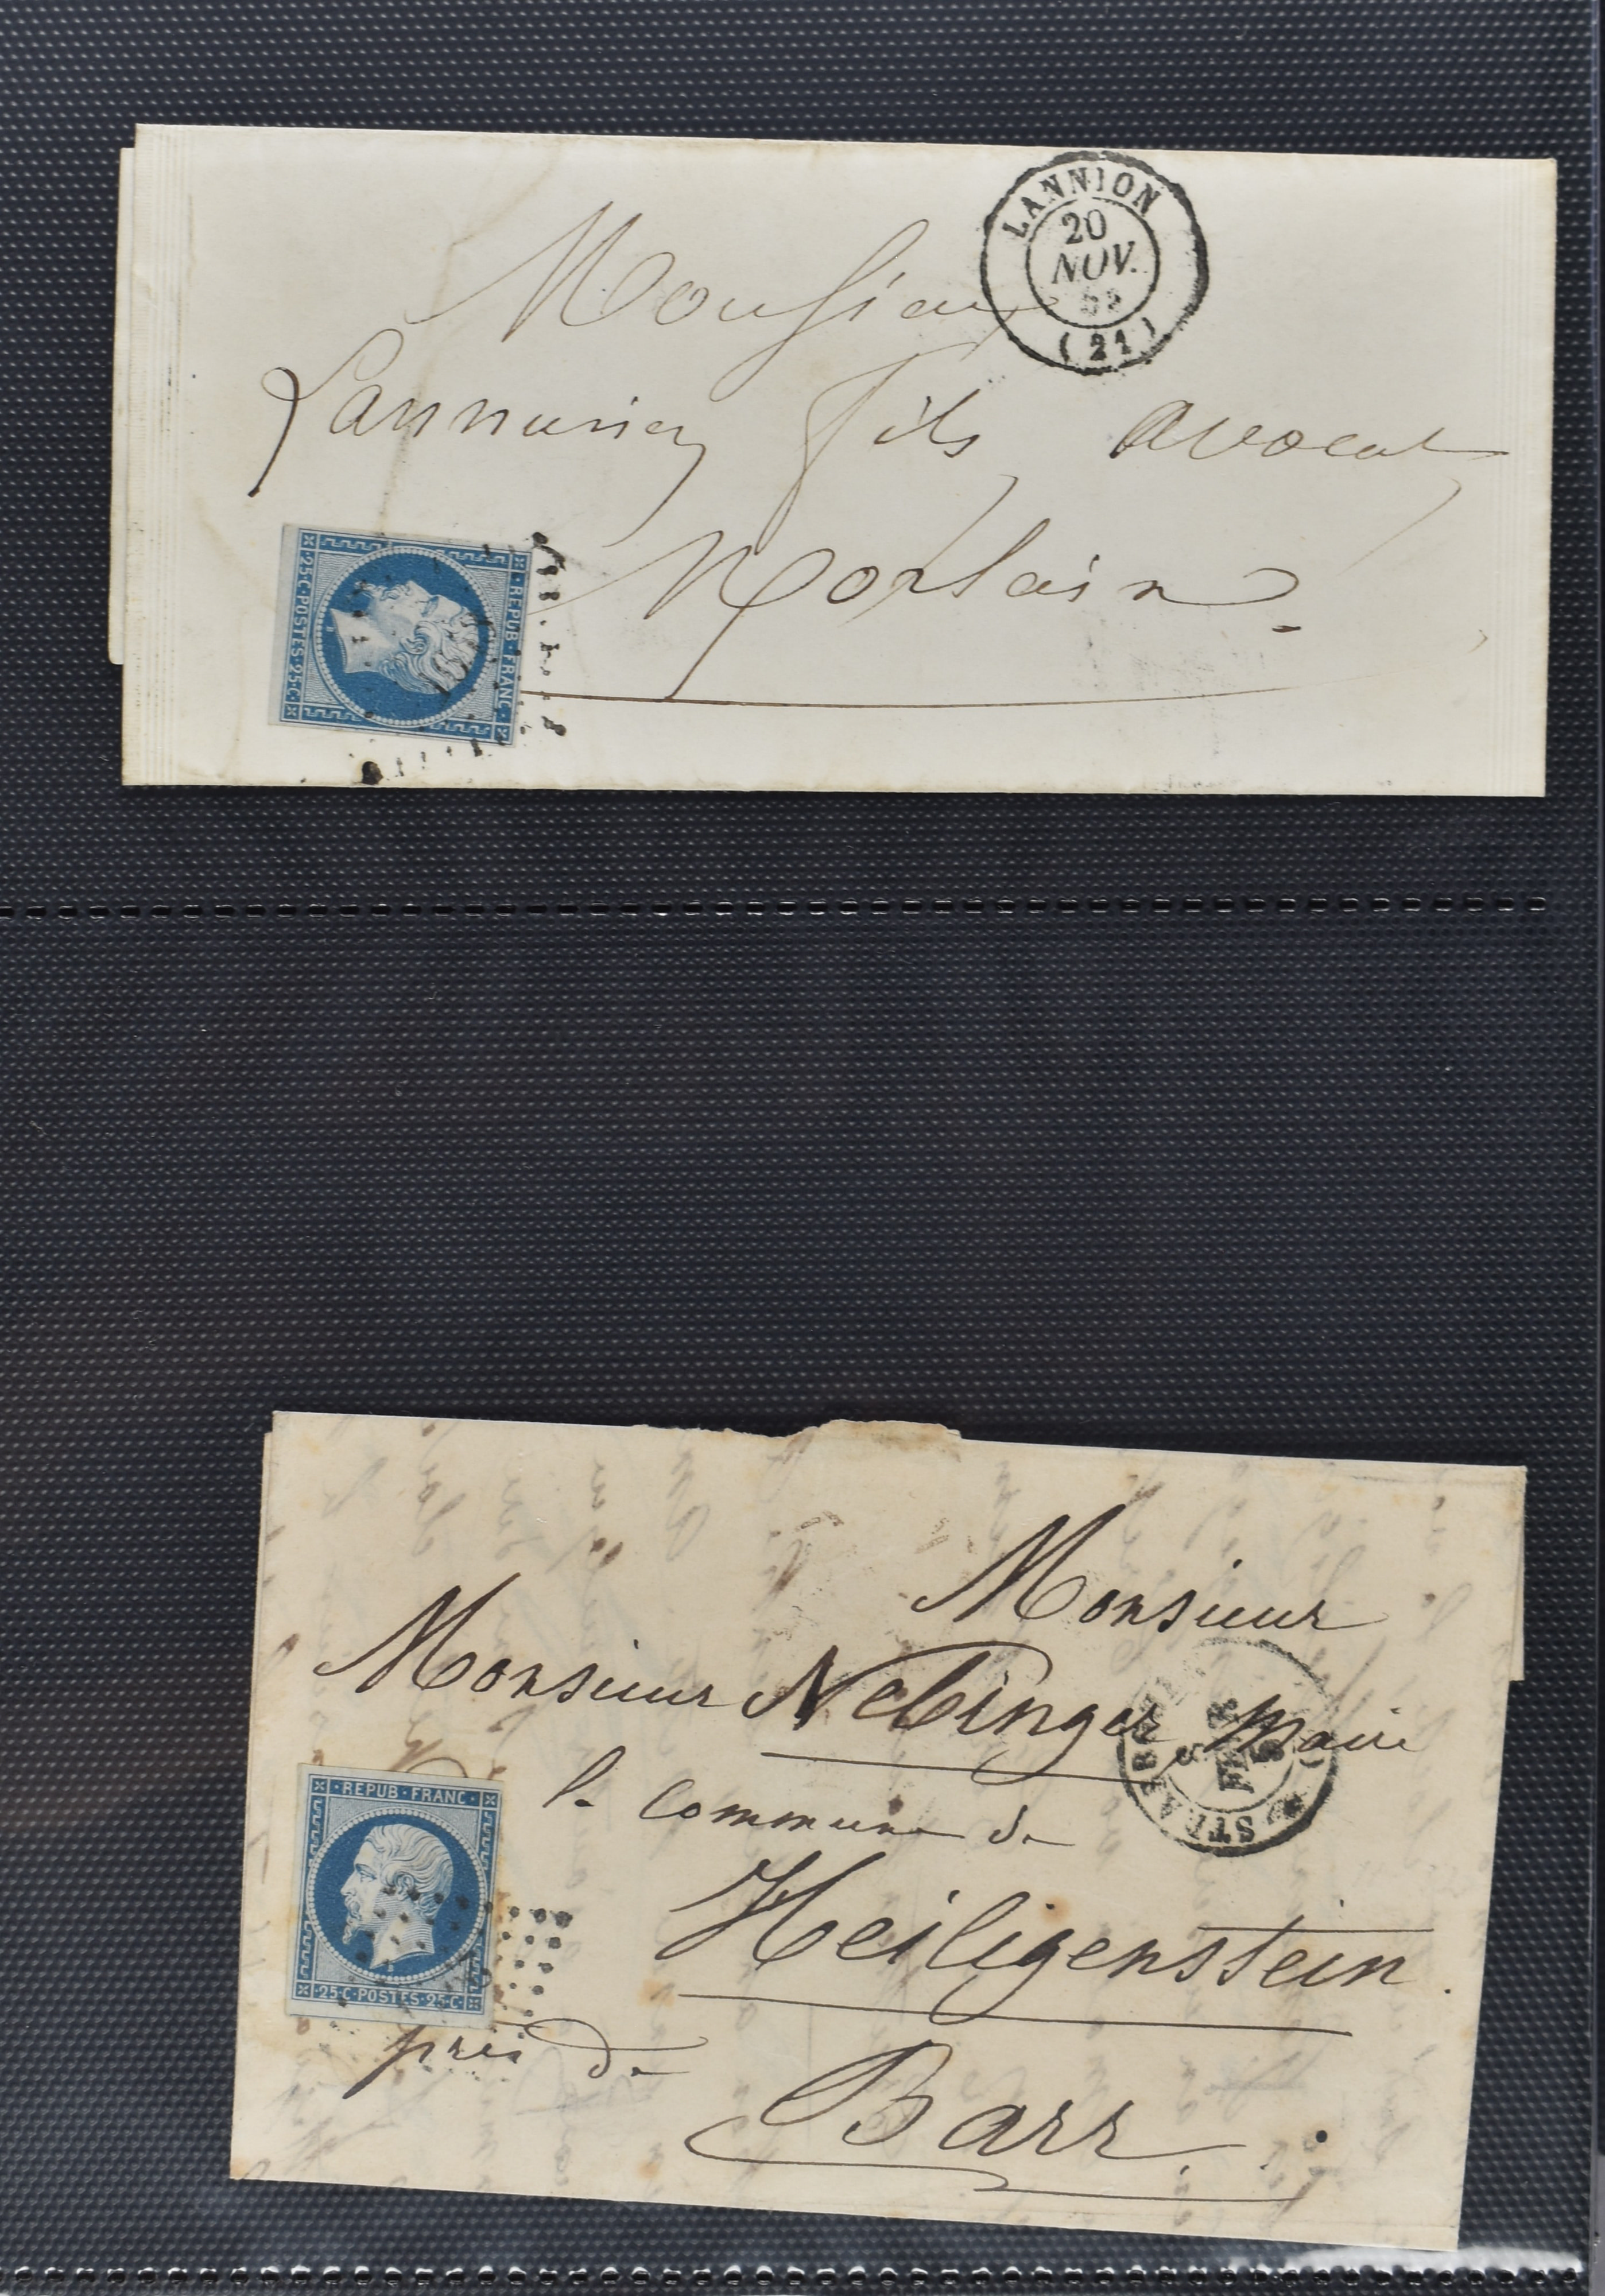 LANNION
20
NOV.
(21)
Monsieur
Lannurien fils avocat
Morlaix
REPUB·FRANC·
·25·C·POSTES·25·C·
Monsieur
Monsieur Nebinger, Maire
STRASBOURG
FEVR
de la commune de
REPUB·FRANC·
·25·C·POSTES·25·C·
Heiligenstein
près de
Barr.